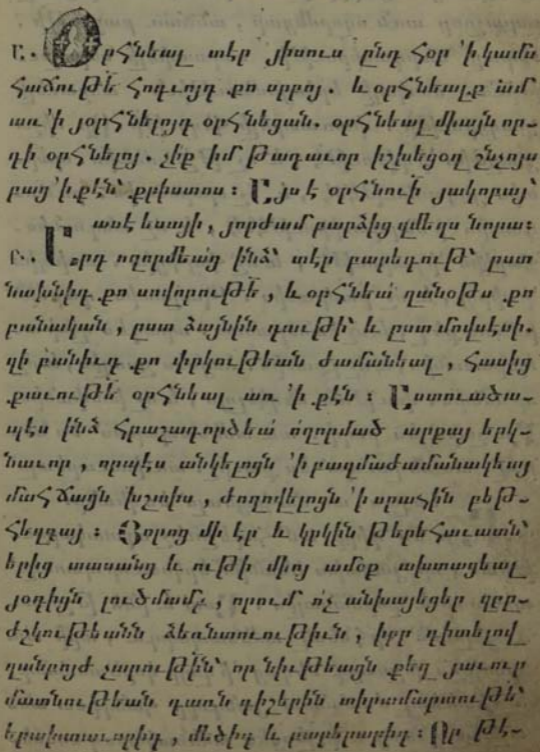 Ը. Օրհնեալ տէր յիսուս ընդ հօր 'ի կամս
հաճութե հոգւոյդ քո սրբոյ. և օրհնեալք ամ
առ 'ի յօրհնելոյդ օրհնեցան. օրհնեալ միայն որ-
դի օրհնելոյ. չիք իմ թագաւոր իշխեցօղ շնչոյս
բաց 'ի քէն՝ քրիստոս: Այս է օրհնուի յակոբայ՝
ասէ եսայի, յորժամ բարձից զմեղս նորա:
Արդ ողորմեաց ինձ՝ տէր բարեգութ՝ ըստ
նախնիդ քո սովորութե, և օրհնեա զանօթս քո
բանական, ըստ ձայնին դաւթի՝ և ըստ մովսէսի.
զի բանիւդ քո փրկութեան ժամանեալ, հասից
քաւութե օրհնեալ առ 'ի քէն: Աստուածա-
պէս ինձ հրաշագործեա ողորմած արքայ երկ-
նաւոր, որպէս անկելոցն 'ի բազմաժամանակեայ
մահճացն խշտիս, ժողովելոցն 'ի սրահին բեթ-
հեզդայ: Յորոց մի էր և կրկին թերեհաւատն՝
երից տասանց և ութի միոյ ամօք ախտացեալ
յօդիցն լուծմամբ, որում ոչ անխայեցեր զբը-
ժշկութեանն ձեռնտուութիւն, իբր գիտելով
զանբոյժ չարութին՝ որ նիւթեացն քեզ յաւուր
մատնութեան դառն գիշերին տիրամարտութե՝
երախտաւորիդ, մեծիդ և բարերարիդ: Որ թէ-